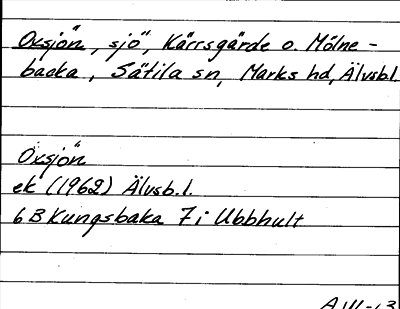 Oxsjön, sjö, Kärrsgärde o. Mölne-
backa, Sätila sn, Marks hd, Älvsb.l.
Oxsjön
ek (1962) Älvsb.l.
6B Kungsbaka 7i Ubbhult